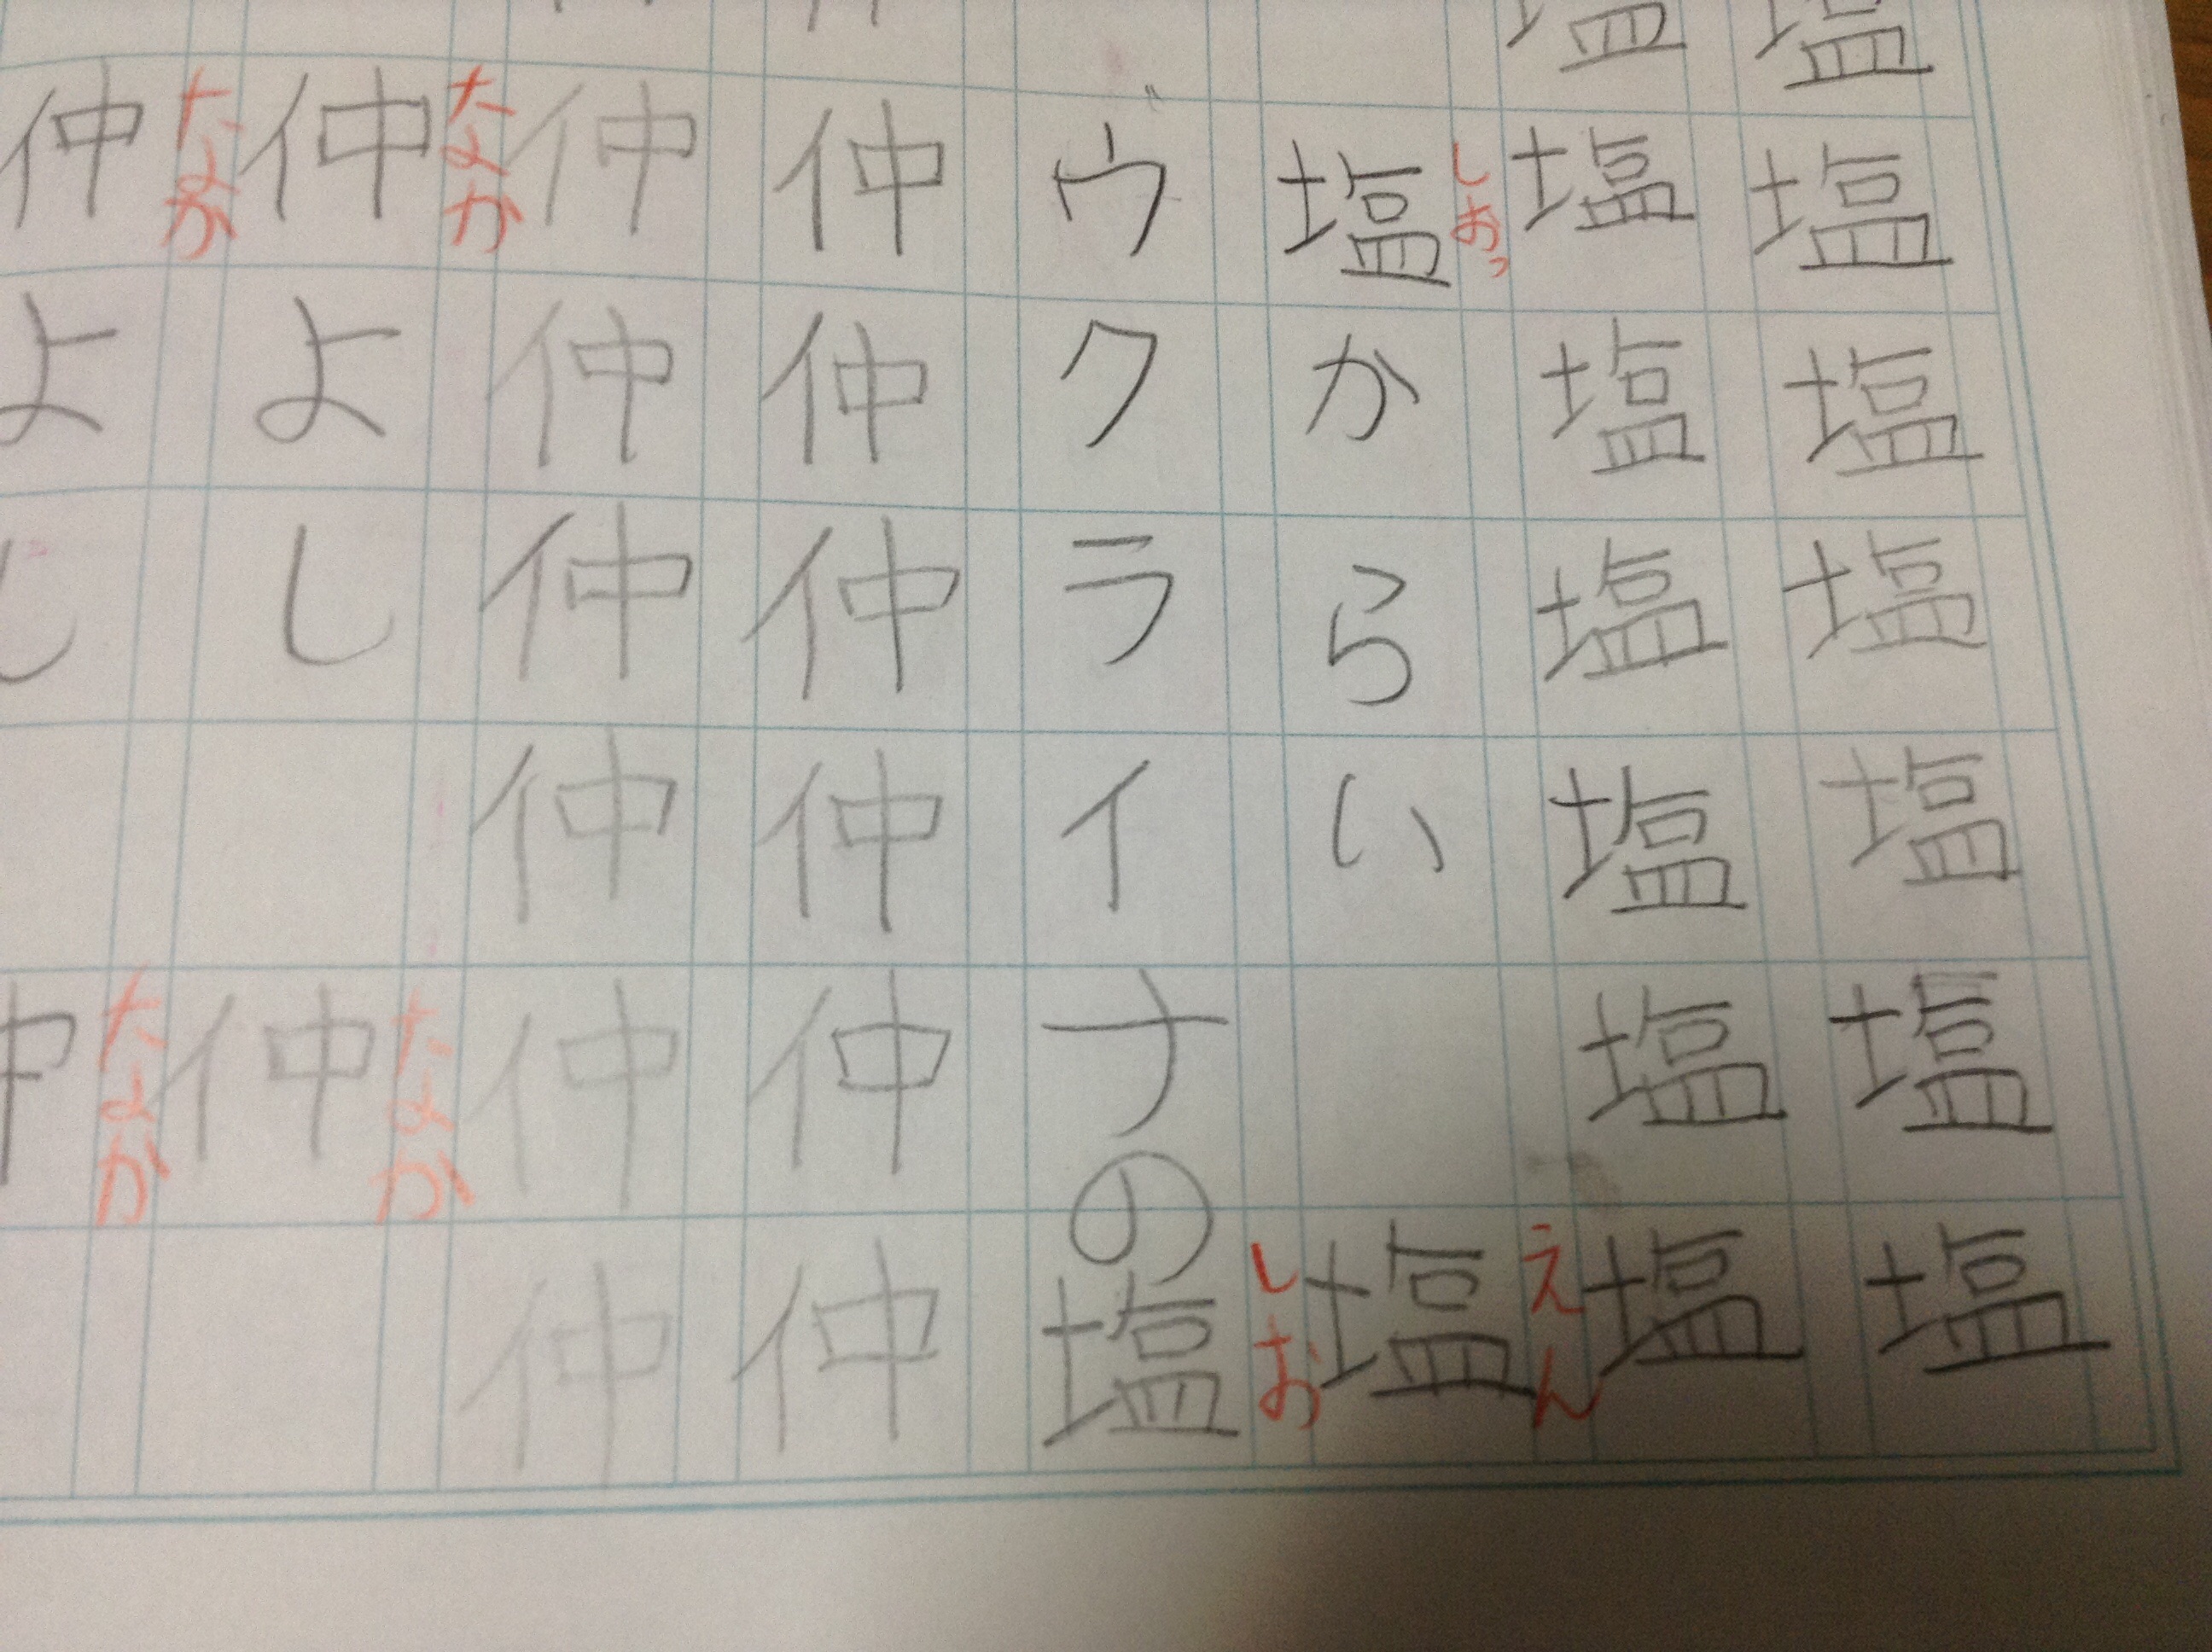 塩塩塩塩塩塩塩
塩塩塩塩塩塩塩
しおっ えん
塩からい 塩
しお
ウクライナの塩
仲仲仲仲仲仲
仲仲仲仲仲仲
なか なか
仲よし 仲
なか なか
仲よし 仲